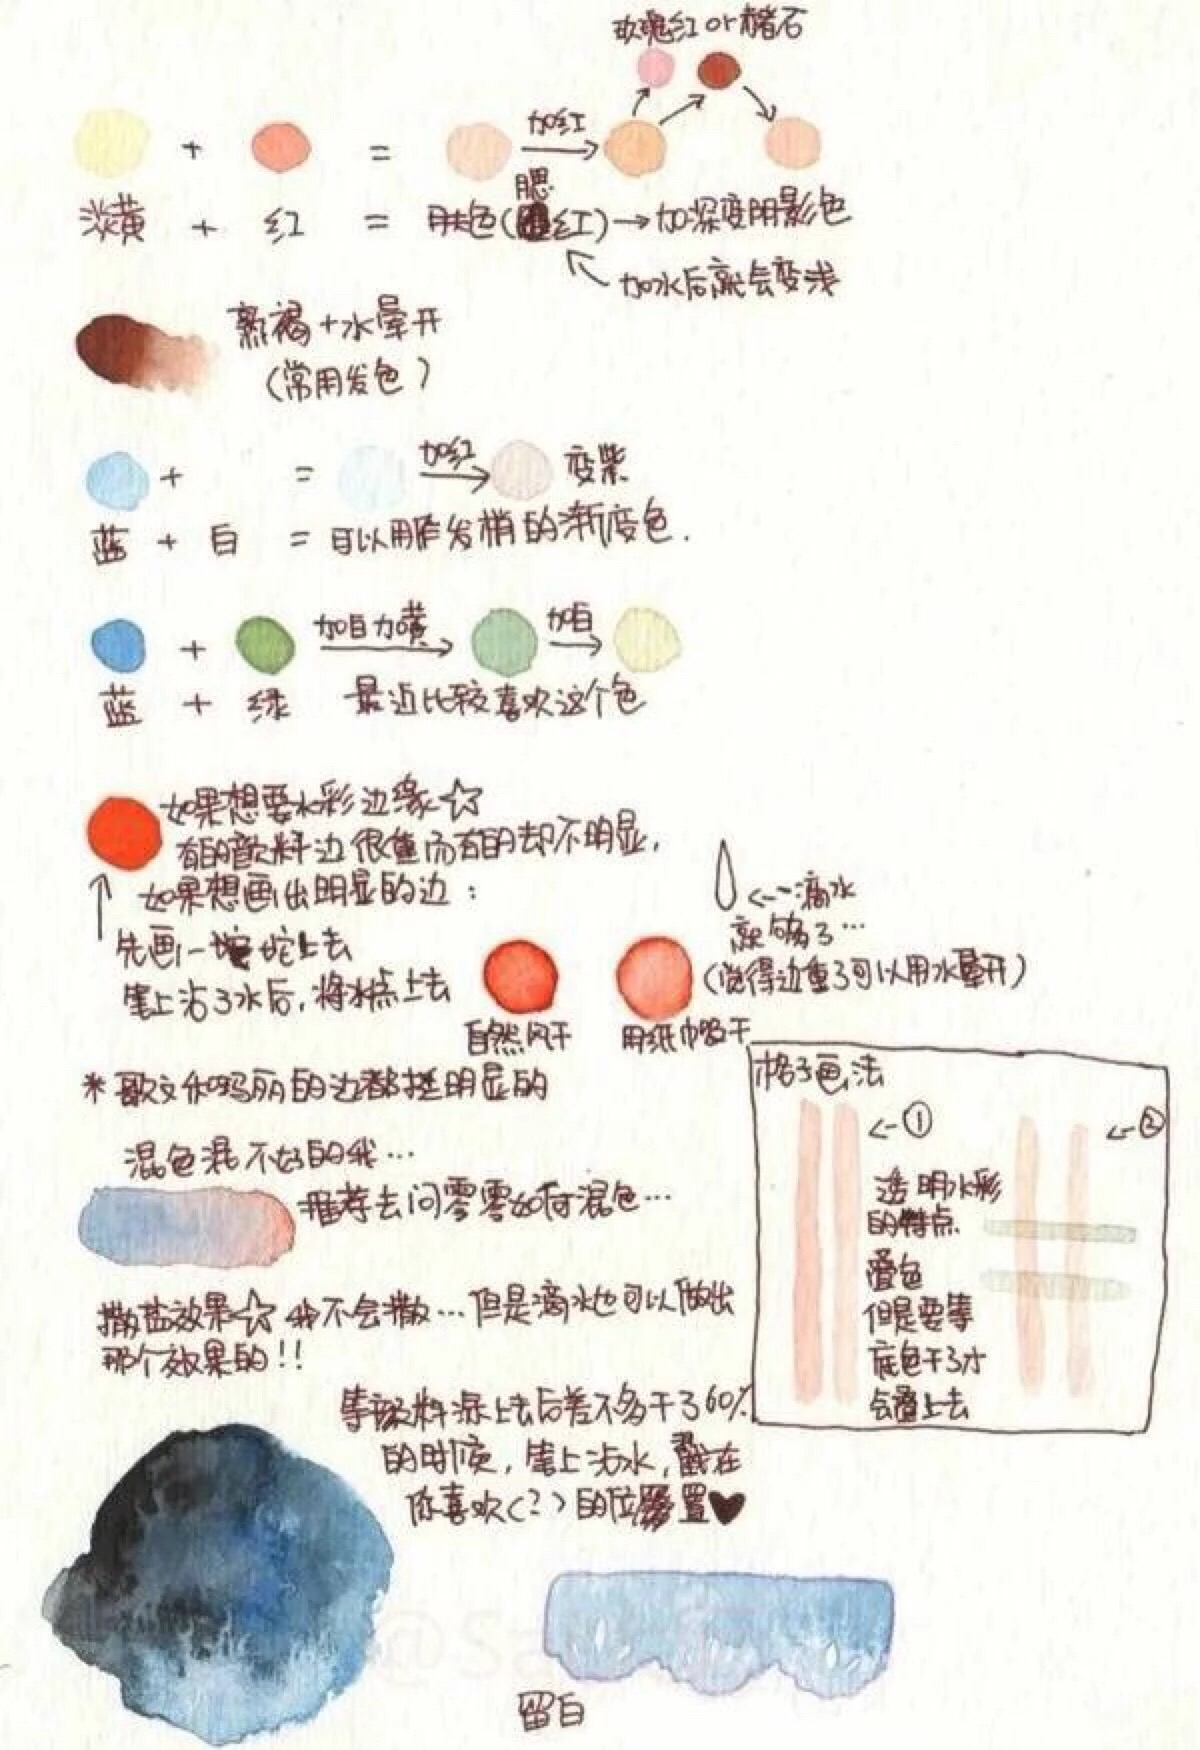 玫瑰红or赭石
加红
+ =
淡黄 + 红 = 肤色(腮红)→加深变阴影色
加水后就会变浅
熟褐+水晕开
(常用发色)
+ = 加红 变紫
蓝 + 白 = 可以用作发梢的渐变色.
+ 加白加黄 加白
蓝 + 绿 最近比较喜欢这个色
如果想要水彩边缘☆
有的颜料边很重而有的却不明显,
如果想画出明显的边:
先画一坨 坨上去
笔上沾了水后,将水点上去
←--滴水
就够了…
(觉得边重了可以用水晕开)
自然风干
用纸巾吸干
*歌文和玛丽的边都挺明显的
混色混不好的我…
推荐去问零零如何混色…
格子画法
←①
←②
透明水彩
的特点
叠色
但是要等
底色干了才
会叠上去
撒盐效果☆我不会撒…但是滴水也可以做出
那个效果的!!
等颜料涂上去后差不多干了60%
的时候,笔上沾水,戳在
你喜欢(?)的位置♥
@Sa
留白